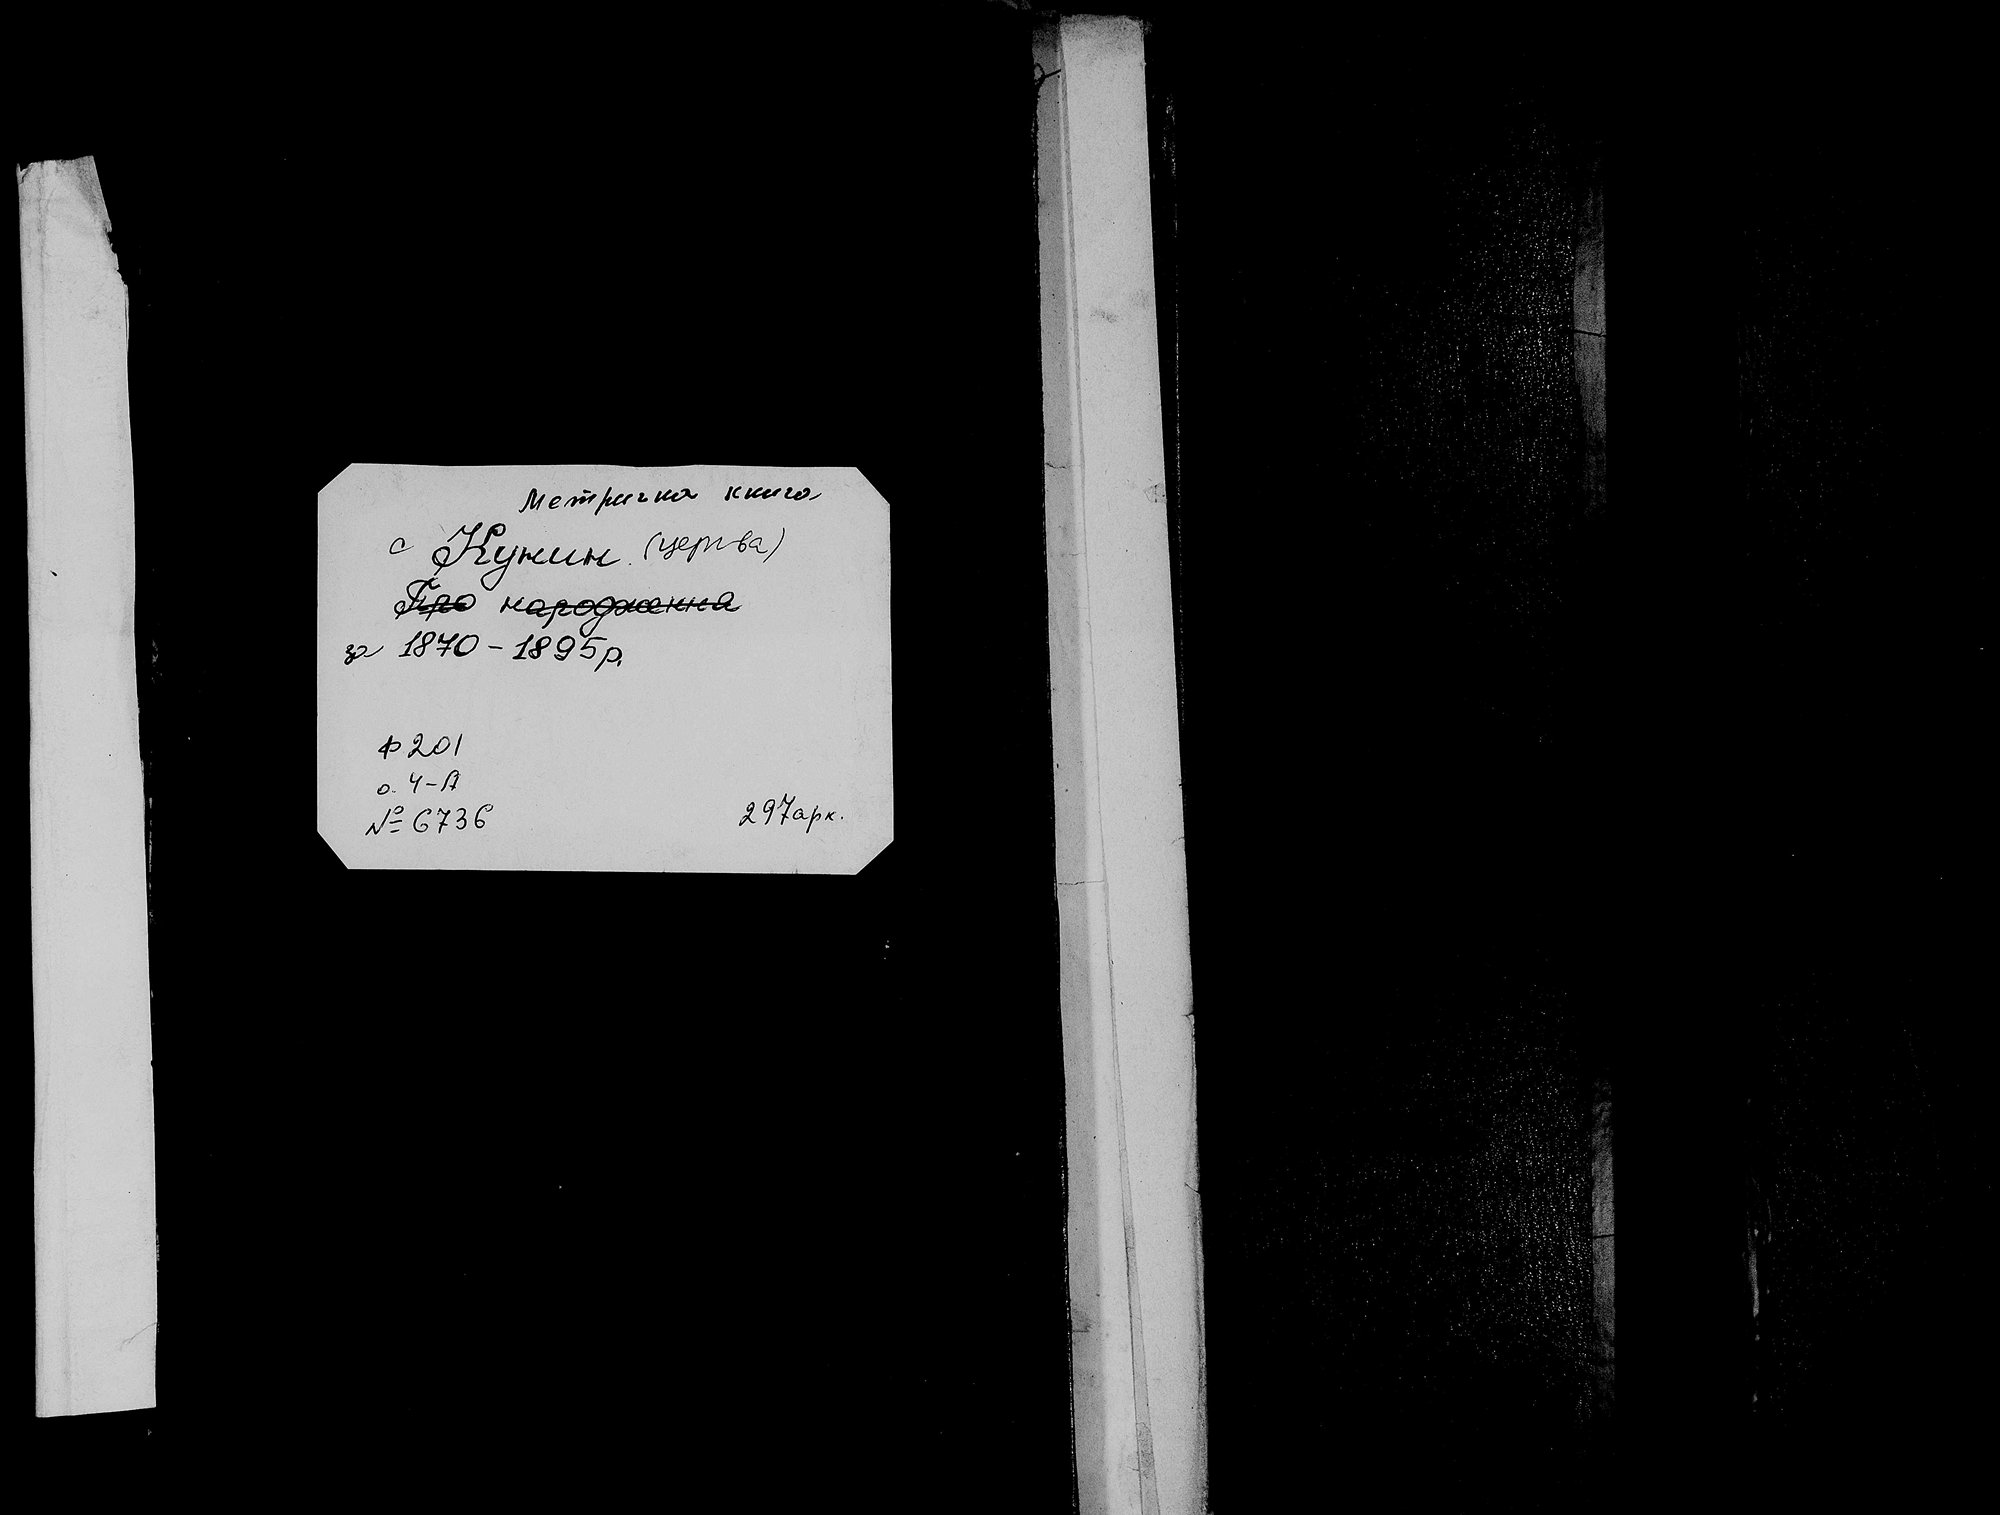 Метрична книга
с Кунин (церква)
Про народження
за 1870-1895р.
Ф 201
о. 4-А
№ 6736
297арк.